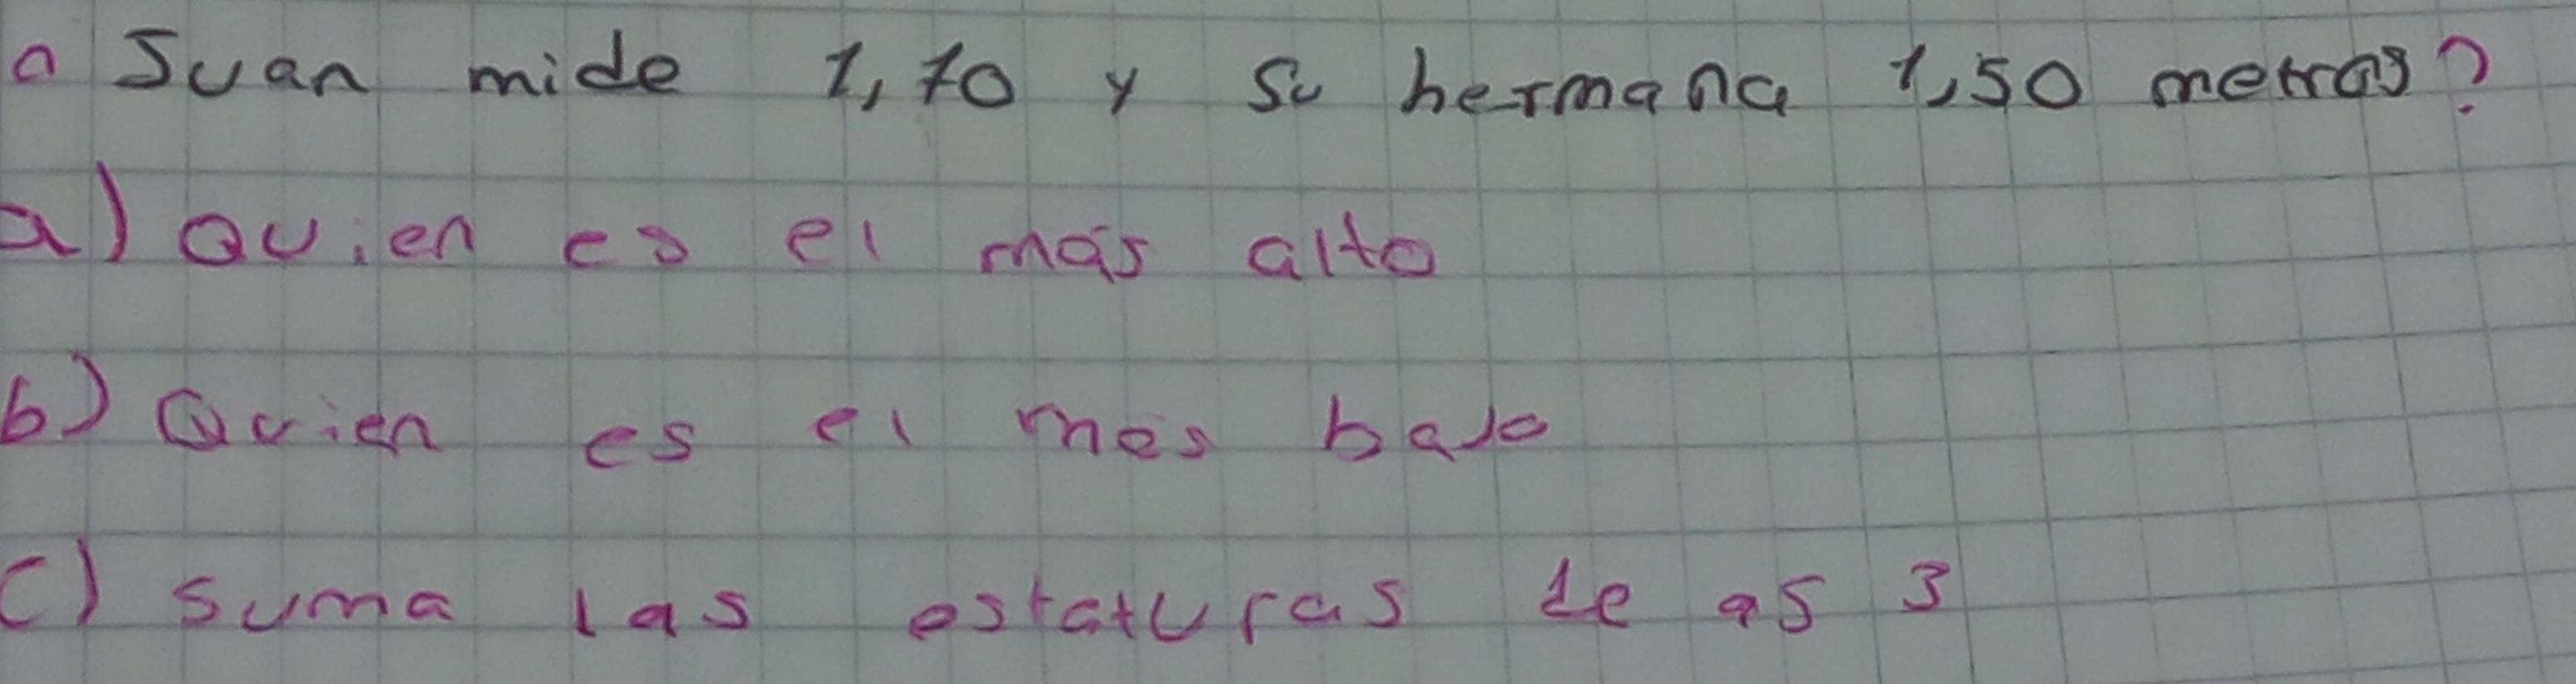 a Juan mide 1,70 y su hermana 1,50 metros?
a) Quien es el más alto
b) Quien es el mas bajo
c) suma las estaturas de as 3